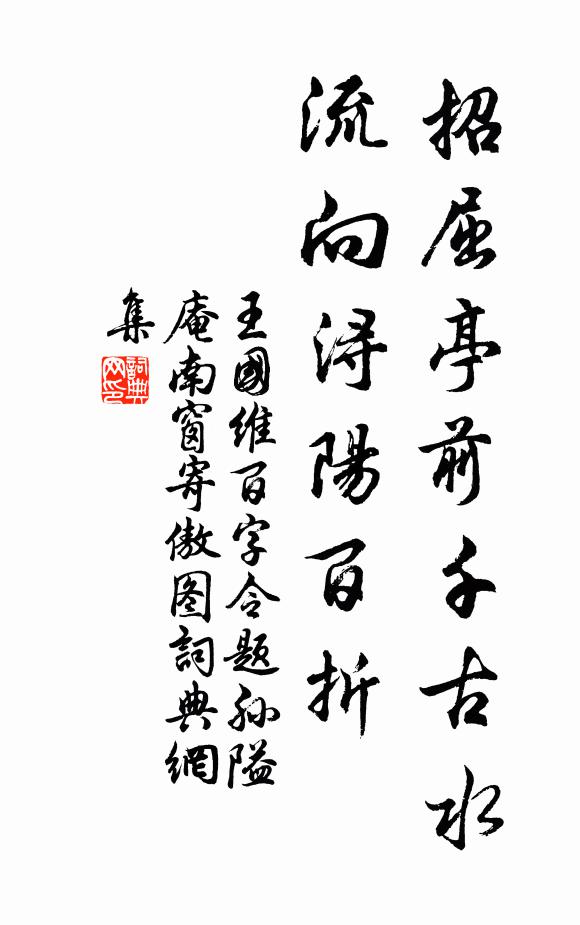 招屈亭前千古水
流向浔陽百折
王國維百字令題孙隘
庵南窗寄傲图詞典網
集
詞典
网印